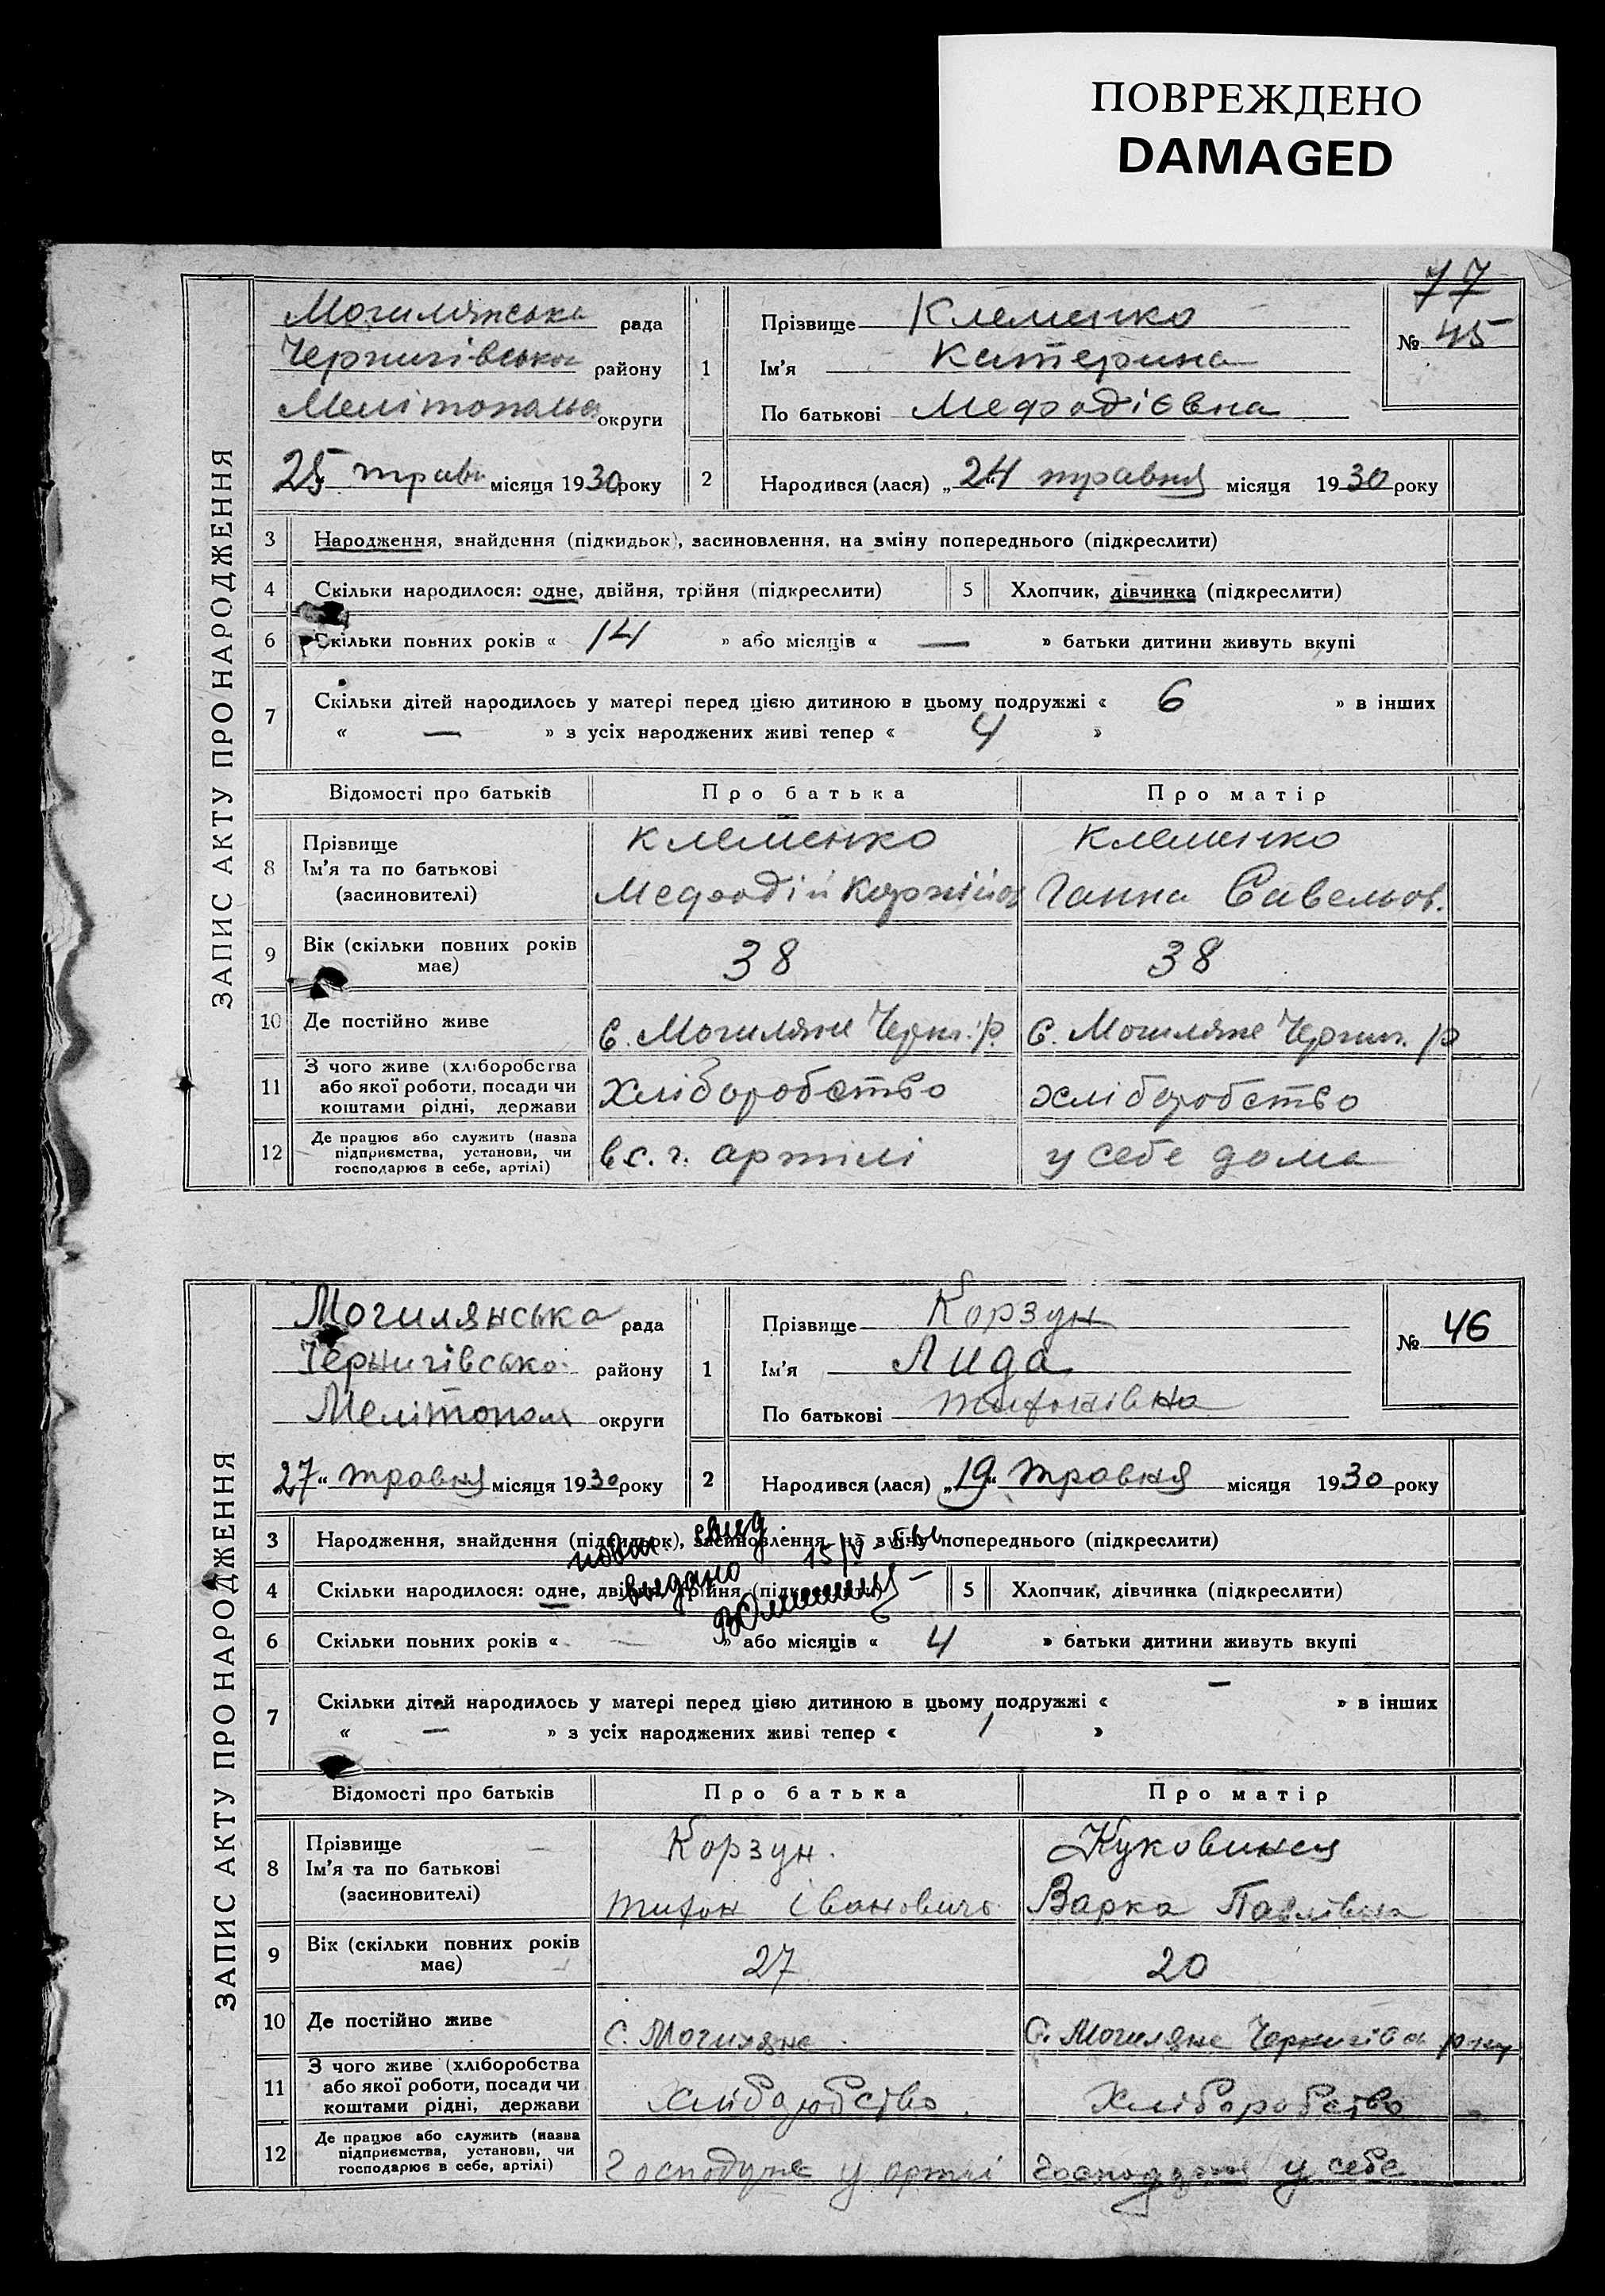 ПОВРЕЖДЕНО
DAMAGED
77
ЗАПИС АКТУ ПРО НАРОДЖЕННЯ
Могилянська рада
Чернигівська району
Мелітопільс округи
25 трав місяця 1930 року
1
Прізвище Клеменко
Ім'я Катерина
По батькові Мефодієвна
№ 45
2
Народився (лася) „24 травня місяця 1930 року
3 Народження, знайдення (підкидьок), засиновлення, на зміну попереднього (підкреслити)
4 Скільки народилося: одне, двійня, трійня (підкреслити) 5 Хлопчик, дівчинка (підкреслити)
6 Скільки повних років « 14 » або місяців « — » батьки дитини живуть вкупі
7 Скільки дітей народилось у матері перед цією дитиною в цьому подружжі « 6 » в інших
« — » з усіх народжених живі тепер « 4 »
Відомості про батьків Про батька Про матір
8 Прізвище
Ім'я та по батькові
(засиновителі)
Клеменко
Мефодій Корнійов
Клеменко
Ганна Савельов.
9 Вік (скільки повних років
має)
38 38
10 Де постійно живе с. Могиляне Черн. р. с. Могиляне Черниг. р
11 З чого живе (хліборобства
або якої роботи, посади чи
коштами рідні, держави
Хліборобство хліборобство
12 Де працює або служить (назва
підприємства, установи, чи
господарює в себе, артілі)
в с. г. артілі у себе дома
ЗАПИС АКТУ ПРО НАРОДЖЕННЯ
Могилянська рада
Чернигівсько району
Мелітополя округи
27 „ травня місяця 1930 року
1
Прізвище Корзун
Ім'я Лида
По батькові Тихонівна
№ 46
2
Народився (лася) „19“ травня місяця 1930 року
3 Народження, знайдення (підкидьок), засиновлення, на зміну попереднього (підкреслити)
4 Скільки народилося: одне, двійня, трійня (підкреслити) 5 Хлопчик, дівчинка (підкреслити)
видано 15/V
6 Скільки повних років « — » або місяців « 4 » батьки дитини живуть вкупі
7 Скільки дітей народилось у матері перед цією дитиною в цьому подружжі « — » в інших
« — » з усіх народжених живі тепер « 1 »
Відомості про батьків Про батька Про матір
8 Прізвище
Ім'я та по батькові
(засиновителі)
Корзун.
Тихон Іванович
Куковиня
Варка Павлівна
9 Вік (скільки повних років
має)
27 20
10 Де постійно живе с. Могиляне с. Могиляне Чернигівсь р-ну
11 З чого живе (хліборобства
або якої роботи, посади чи
коштами рідні, держави
Хліборобство. Хліборобство
12 Де працює або служить (назва
підприємства, установи, чи
господарює в себе, артілі)
Господарює у артілі у себе